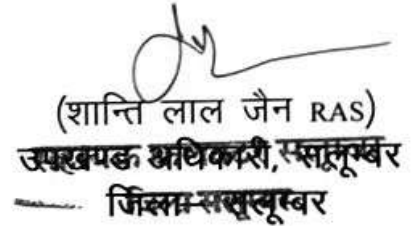 (शान्ति लाल जैन RAS)
उपखण्ड अधिकारी, सलूम्बर
जिला-सलूम्बर